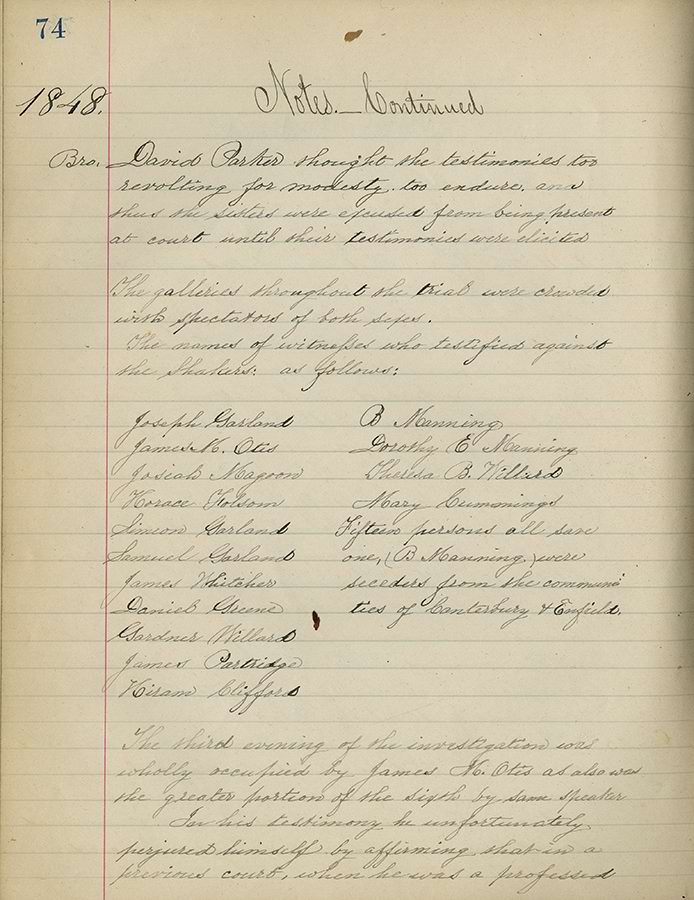 74
1848. Notes.— Continued
Bro. David Parker thought the testimonies too
revolting for modesty, too endure, and
thus the sisters were excused from being present
at court until their testimonies were elicited
The galleries throughout the trial were crowded
with spectators of both sexes.
The names of witnesses who testified against
the Shakers: as follows:
Joseph Garland
James M. Otis
Josiah Magoon
Horace Folsom
Simeon Garland
Samuel Garland
James Whitcher
Daniel Greene
Gardner Willard
James Partridge
Hiram Clifford
B Manning
Dorothy E Manning
Theresa B. Willard
Mary Cummings
Fifteen persons all save
one, (B Manning,) were
seceders from the communi
ties of Canterbury & Enfield.
The third evening of the investigation was
wholly occupied by James M. Otis as also was
the greater portion of the sixth by same speaker
In his testimony he unfortunately
perjured himself by affirming that in a
previous court, when he was a professed